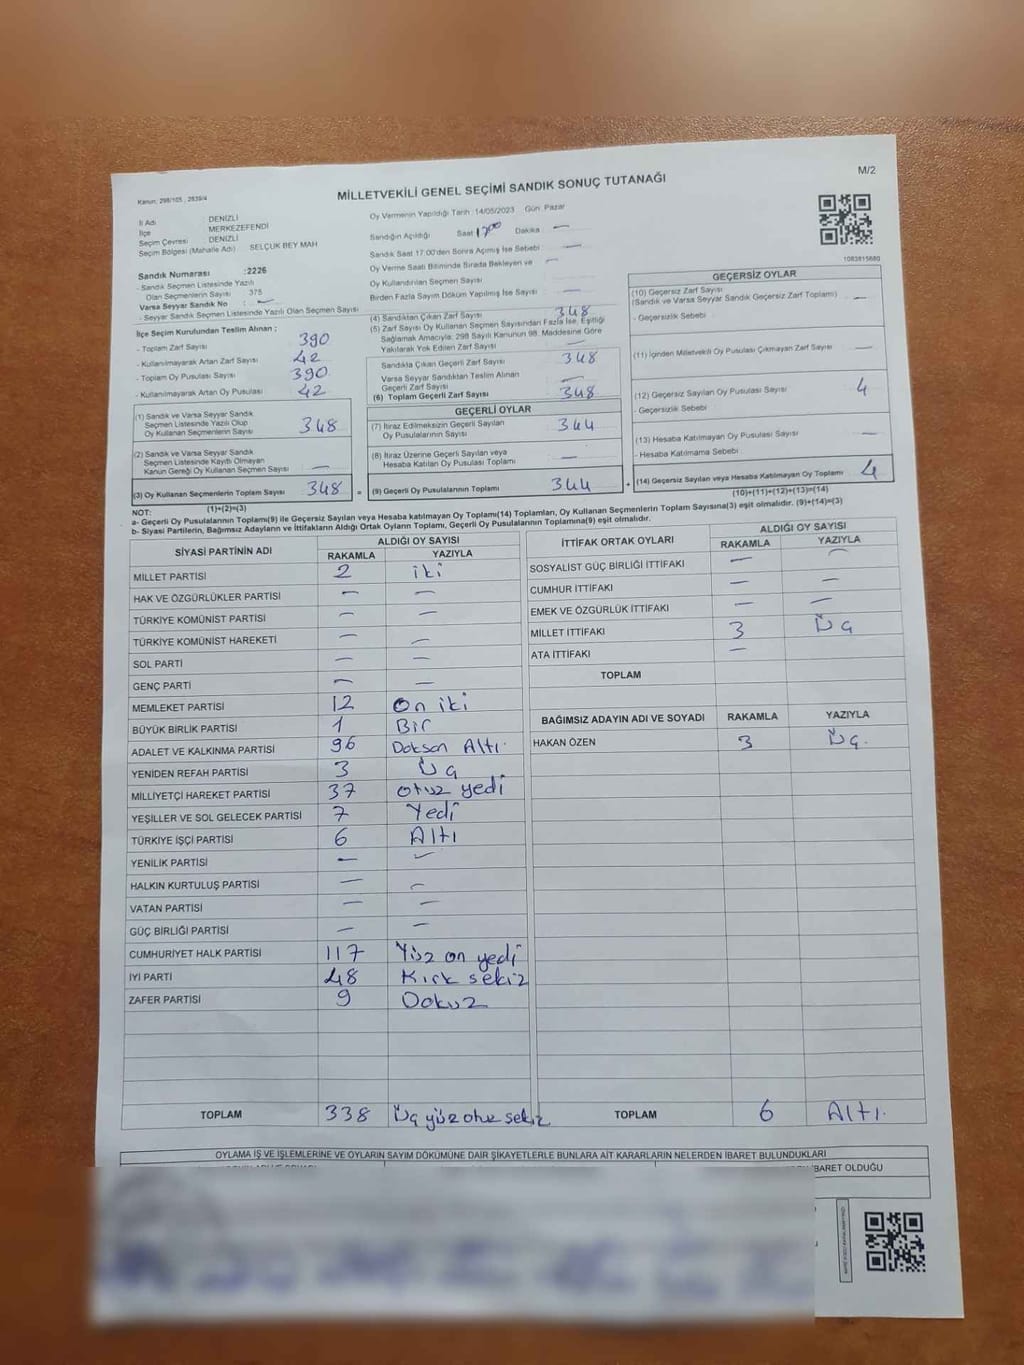 Kanun: 298/105 , 2839/4
MİLLETVEKİLİ GENEL SEÇİMİ SANDIK SONUÇ TUTANAĞI
M/2
İl Adı DENİZLİ
İlçe MERKEZEFENDİ
Seçim Çevresi DENİZLİ
Seçim Bölgesi (Mahalle Adı) SELÇUK BEY MAH
Sandık Numarası :2226
- Sandık Seçmen Listesinde Yazılı
Olan Seçmenlerin Sayısı 375
Varsa Seyyar Sandık No : —
- Seyyar Sandık Seçmen Listesinde Yazılı Olan Seçmen Sayısı
Oy Vermenin Yapıldığı Tarih : 14/05/2023 Gün: Pazar
Sandığın Açıldığı Saat 17:00 Dakika —
Sandık Saat 17.00'den Sonra Açılmış İse Sebebi —
Oy Verme Saati Bitiminde Sırada Bekleyen ve —
Oy Kullandırılan Seçmen Sayısı
Birden Fazla Sayım Döküm Yapılmış İse Sayısı —
1083815680
İlçe Seçim Kurulundan Teslim Alınan ;
- Toplam Zarf Sayısı 390
- Kullanılmayarak Artan Zarf Sayısı 42
- Toplam Oy Pusulası Sayısı 390
- Kullanılmayarak Artan Oy Pusulası 42
(1) Sandık ve Varsa Seyyar Sandık
Seçmen Listesinde Yazılı Olup
Oy Kullanan Seçmenlerin Sayısı 348
(2) Sandık ve Varsa Seyyar Sandık
Seçmen Listesinde Kayıtlı Olmayan
Kanun Gereği Oy Kullanan Seçmen Sayısı —
(3) Oy Kullanan Seçmenlerin Toplam Sayısı 348 =
(1)+(2)=(3)
(4) Sandıktan Çıkan Zarf Sayısı 348
(5) Zarf Sayısı Oy Kullanan Seçmen Sayısından Fazla İse, Eşitliği
Sağlamak Amacıyla; 298 Sayılı Kanunun 98. Maddesine Göre
Yakılarak Yok Edilen Zarf Sayısı —
Sandıkta Çıkan Geçerli Zarf Sayısı 348
Varsa Seyyar Sandıktan Teslim Alınan
Geçerli Zarf Sayısı —
(6) Toplam Geçerli Zarf Sayısı 348
GEÇERLİ OYLAR
(7) İtiraz Edilmeksizin Geçerli Sayılan
Oy Pusulalarının Sayısı 344
(8) İtiraz Üzerine Geçerli Sayılan veya
Hesaba Katılan Oy Pusulası Toplamı —
(9) Geçerli Oy Pusulalarının Toplamı 344 +
GEÇERSİZ OYLAR
(10) Geçersiz Zarf Sayısı
(Sandık ve Varsa Seyyar Sandık Geçersiz Zarf Toplamı) —
- Geçersizlik Sebebi
(11) İçinden Milletvekili Oy Pusulası Çıkmayan Zarf Sayısı —
(12) Geçersiz Sayılan Oy Pusulası Sayısı 4
- Geçersizlik Sebebi
(13) Hesaba Katılmayan Oy Pusulası Sayısı —
- Hesaba Katılmama Sebebi
(14) Geçersiz Sayılan veya Hesaba Katılmayan Oy Toplamı 4
(10)+(11)+(12)+(13)=(14)
NOT:
a- Geçerli Oy Pusulalarının Toplamı(9) ile Geçersiz Sayılan veya Hesaba Katılmayan Oy Toplamı(14) Toplamları, Oy Kullanan Seçmenlerin Toplam Sayısına(3) eşit olmalıdır. (9)+(14)=(3)
b- Siyasi Partilerin, Bağımsız Adayların ve İttifakların Aldığı Ortak Oyların Toplamı, Geçerli Oy Pusulalarının Toplamına(9) eşit olmalıdır.
SİYASİ PARTİNİN ADI ALDIĞI OY SAYISI
RAKAMLA YAZIYLA
MİLLET PARTİSİ 2 iki
HAK VE ÖZGÜRLÜKLER PARTİSİ — —
TÜRKİYE KOMÜNİST PARTİSİ — —
TÜRKİYE KOMÜNİST HAREKETİ — —
SOL PARTİ — —
GENÇ PARTİ — —
MEMLEKET PARTİSİ 12 on iki
BÜYÜK BİRLİK PARTİSİ 1 Bir
ADALET VE KALKINMA PARTİSİ 96 Doksan Altı
YENİDEN REFAH PARTİSİ 3 Üç
MİLLİYETÇİ HAREKET PARTİSİ 37 otuz yedi
YEŞİLLER VE SOL GELECEK PARTİSİ 7 Yedi
TÜRKİYE İŞÇİ PARTİSİ 6 Altı
YENİLİK PARTİSİ — —
HALKIN KURTULUŞ PARTİSİ — —
VATAN PARTİSİ — —
GÜÇ BİRLİĞİ PARTİSİ — —
CUMHURİYET HALK PARTİSİ 117 Yüz on yedi
İYİ PARTİ 48 Kırk sekiz
ZAFER PARTİSİ 9 Dokuz
TOPLAM 338 Üç yüz otuz sekiz
İTTİFAK ORTAK OYLARI ALDIĞI OY SAYISI
RAKAMLA YAZIYLA
SOSYALİST GÜÇ BİRLİĞİ İTTİFAKI — —
CUMHUR İTTİFAKI — —
EMEK VE ÖZGÜRLÜK İTTİFAKI — —
MİLLET İTTİFAKI 3 Üç
ATA İTTİFAKI —
TOPLAM
BAĞIMSIZ ADAYIN ADI VE SOYADI RAKAMLA YAZIYLA
HAKAN ÖZEN 3 Üç.
TOPLAM 6 Altı.
OYLAMA İŞ VE İŞLEMLERİNE VE OYLARIN SAYIM DÖKÜMÜNE DAİR ŞİKAYETLERLE BUNLARA AİT KARARLARIN NELERDEN İBARET BULUNDUKLARI
İBARET OLDUĞU